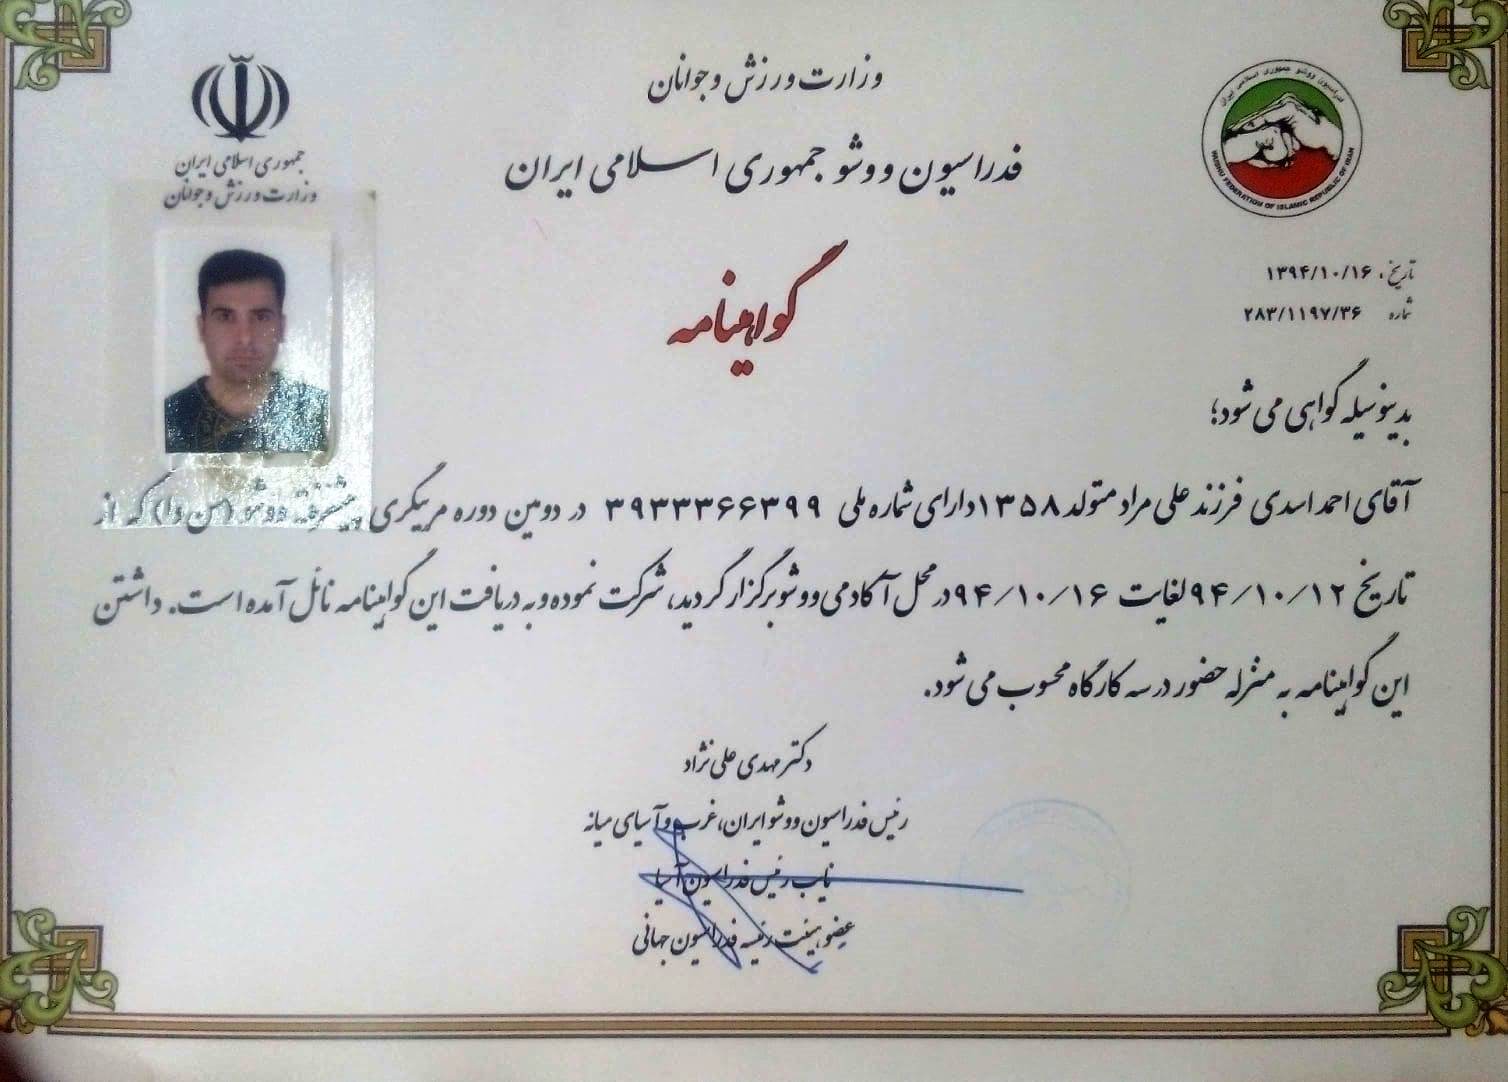 جمهوری اسلامی ایران
وزارت ورزش و جوانان
وزارت ورزش و جوانان
فدراسیون ووشو جمهوری اسلامی ایران
فدراسیون ووشو جمهوری اسلامی ایران
WUSHU FEDERATION OF ISLAMIC REPUBLIC OF IRAN
گواهینامه
تاریخ: ۱۳۹۴/۱۰/۱۶
شماره ۲۸۳/۱۱۹۷/۳۶
بدینوسیله گواهی می شود؛
آقای احمد اسدی فرزند علی مراد متولد ۱۳۵۸ دارای شماره ملی ۳۹۳۳۳۶۶۳۹۹ در دومین دوره مربیگری پیشرفته ووشو (سن وا) که از
تاریخ ۹۴/۱۰/۱۲ لغایت ۹۴/۱۰/۱۶ در محل آکادمی ووشو برگزار گردید، شرکت نموده و به دریافت این گواهینامه نائل آمده است. داشتن
این گواهینامه به منزله حضور در سه کارگاه محسوب می شود.
دکتر مهدی علی نژاد
رئیس فدراسیون ووشو ایران، غرب و آسیای میانه
نایب رئیس فدراسیون آسیا
عضو هیئت رئیسه فدراسیون جهانی